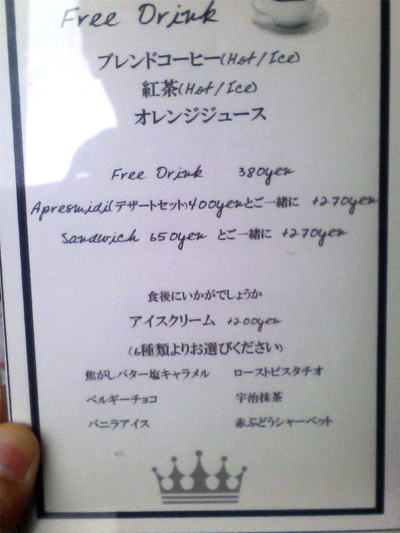 Free Drink
ブレンドコーヒー(Hot/Ice)
紅茶(Hot/Ice)
オレンジジュース
Free Drink 380yen
Apresmidi(デザートセット)400yenとご一緒に +270yen
Sandwich 650yen とご一緒に +270yen
食後にいかがでしょうか
アイスクリーム +200yen
(6種類よりお選びください)
焦がしバター塩キャラメル ローストピスタチオ
ベルギーチョコ 宇治抹茶
バニラアイス 赤ぶどうシャーベット